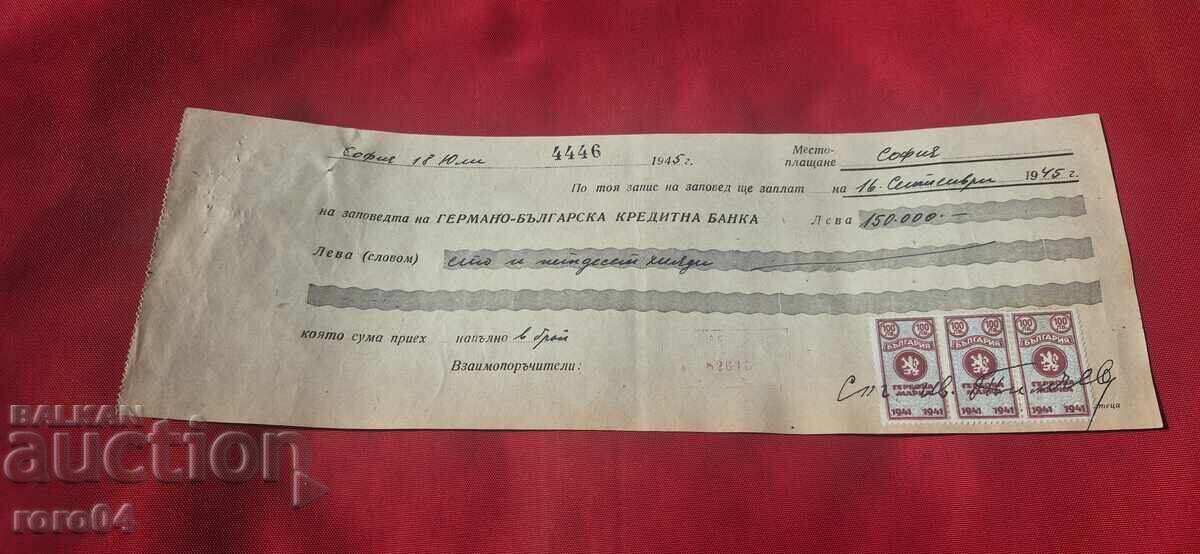 София 18 Юли 4446 1945 г. Место-плащане София
По тоя запис на заповед ще заплат на 16. Септемврий 1945 г.
на заповедта на ГЕРМАНО-БЪЛГАРСКА КРЕДИТНА БАНКА Лева 150.000.—
Лева (словом) сто и петдесет хиляди
която сума приех напълно в брой
Взаимопоръчители:
82615
100 ЛВ. 100 ЛВ. 100 ЛВ. 100 ЛВ. 100 ЛВ. 100 ЛВ.
БЪЛГАРИЯ БЪЛГАРИЯ БЪЛГАРИЯ
ГЕРБОВА МАРКА ГЕРБОВА МАРКА ГЕРБОВА МАРКА
1941 1941 1941 1941 1941 1941
BALKAN
auction
roro04